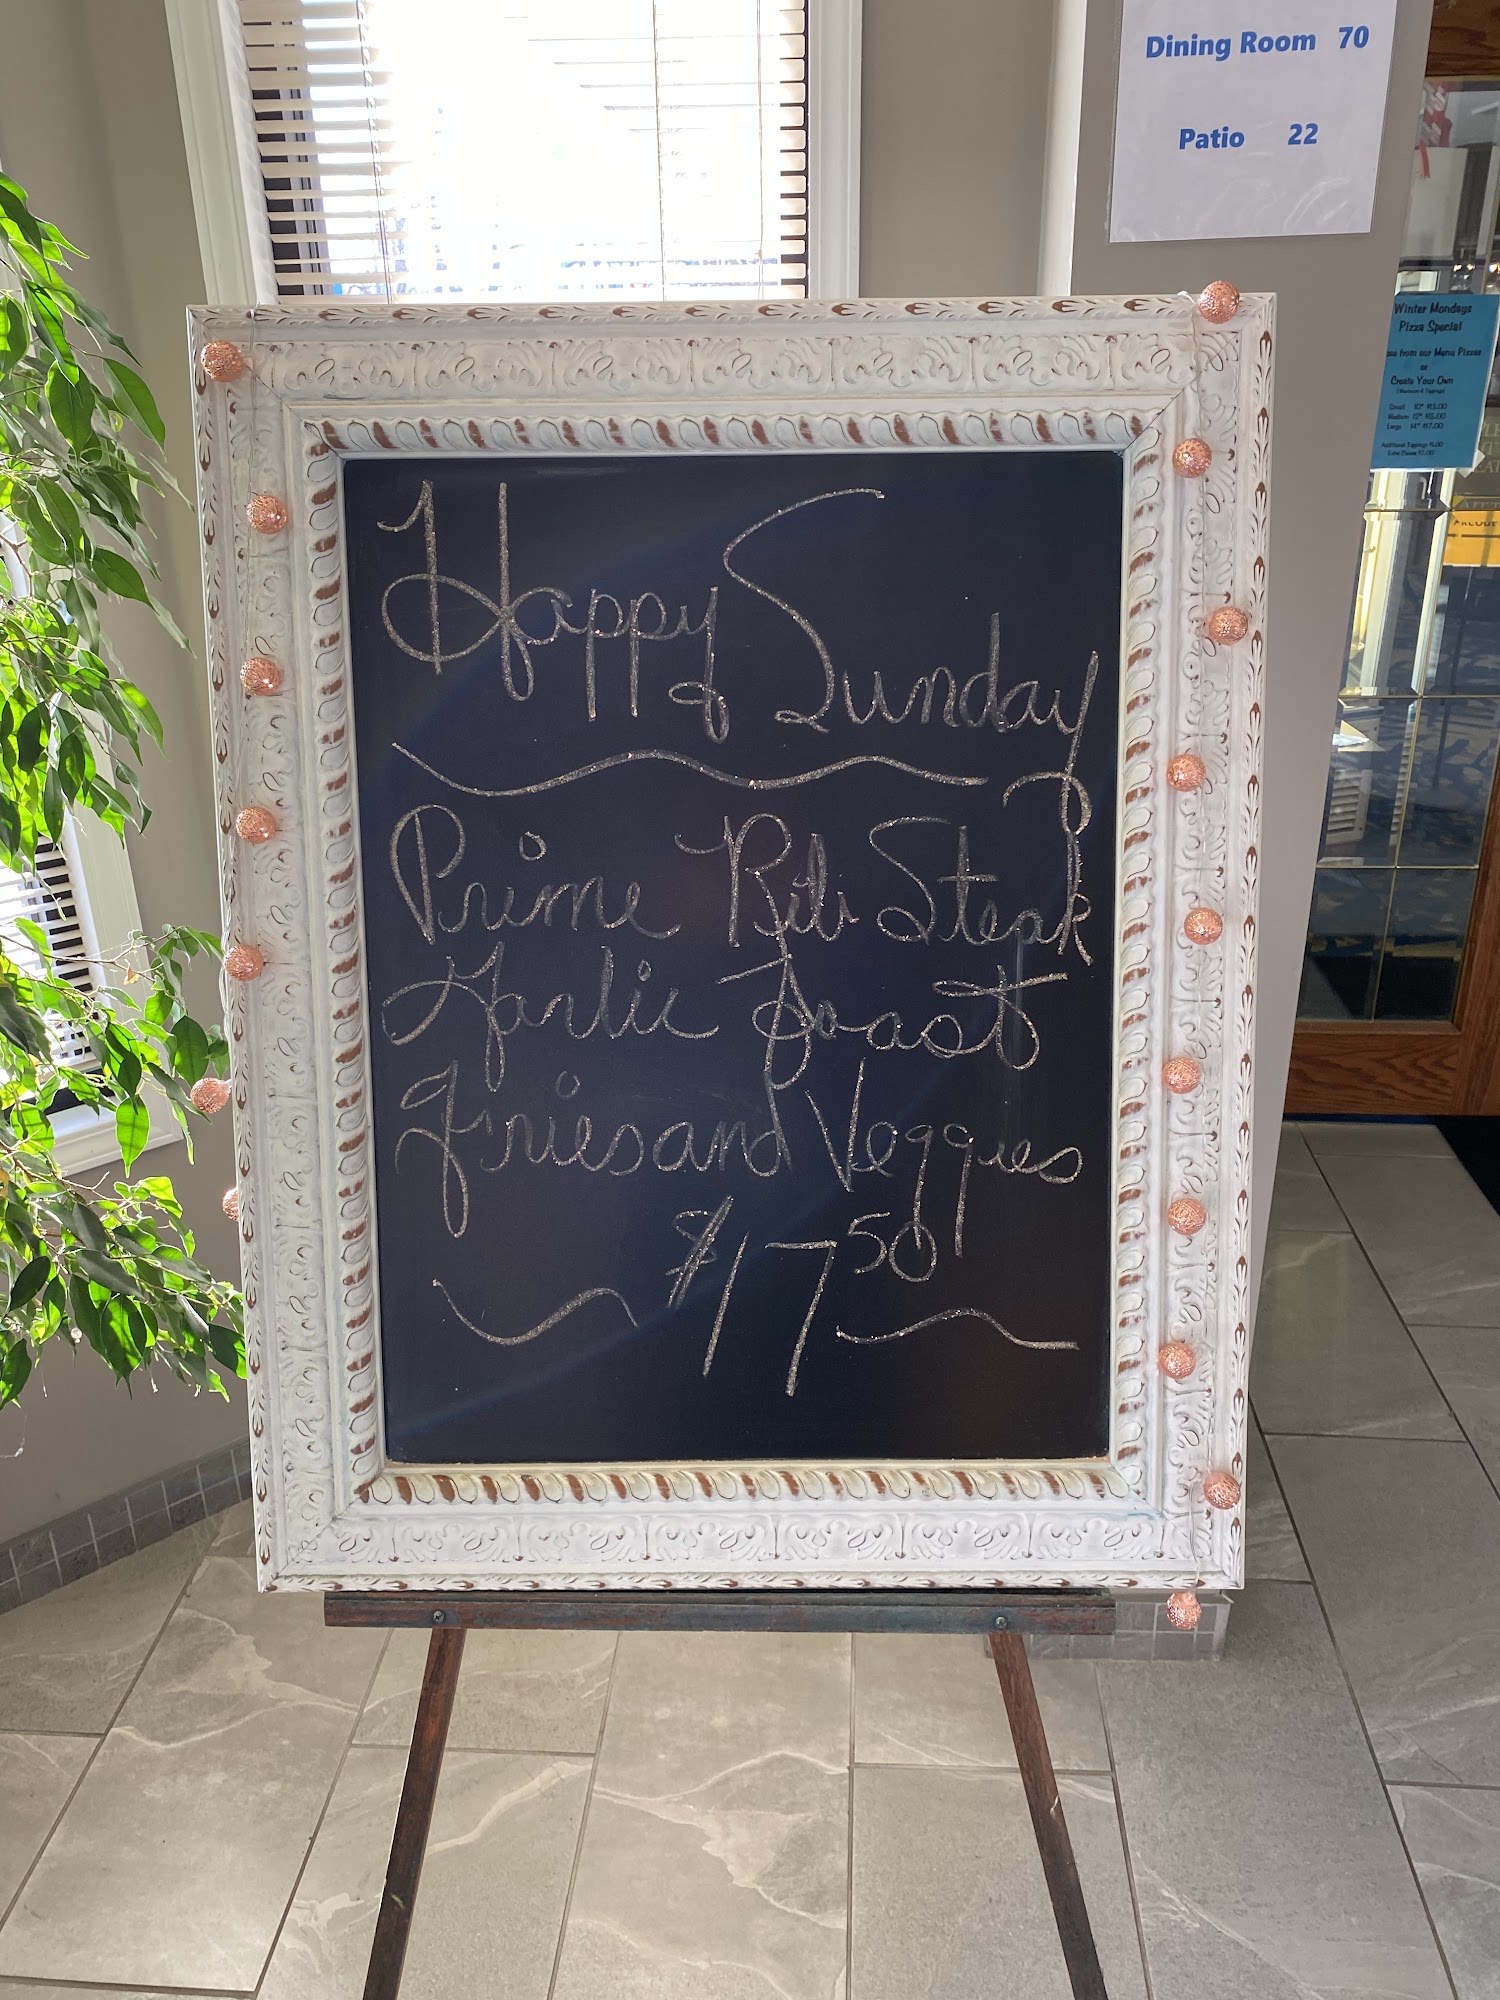 Dining Room 70
Patio 22
Winter Mondays
Pizza Special
from our Menu Pizzas
or
Create Your Own
Small 10" $13.00
Medium 12" $15.00
Large 14" $17.00
Additional Toppings
Extra Cheese
Happy Sunday
Prime Rib Steak
Garlic Toast
Fries and Veggies
$17 50